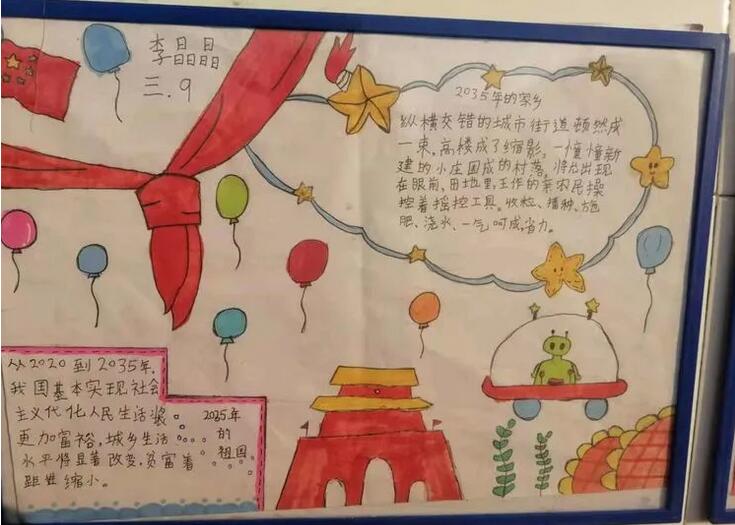 李晶晶
三.9
2035年的家乡
纵横交错的城市街道顿然成
一束,高楼成了缩影,一幢幢新
建的小庄园成的村落,将么出现
在眼前,田地里,工作的亲农民操
控着摇控工具。收粒、播种、施
肥、浇水、一气呵成,省力。
从2020到2035年,
我国基本实现社会
主义代化人民生活
更加富裕,城乡生活
水平将显著改变,贫富着
距进缩小。
2035年
的
祖国